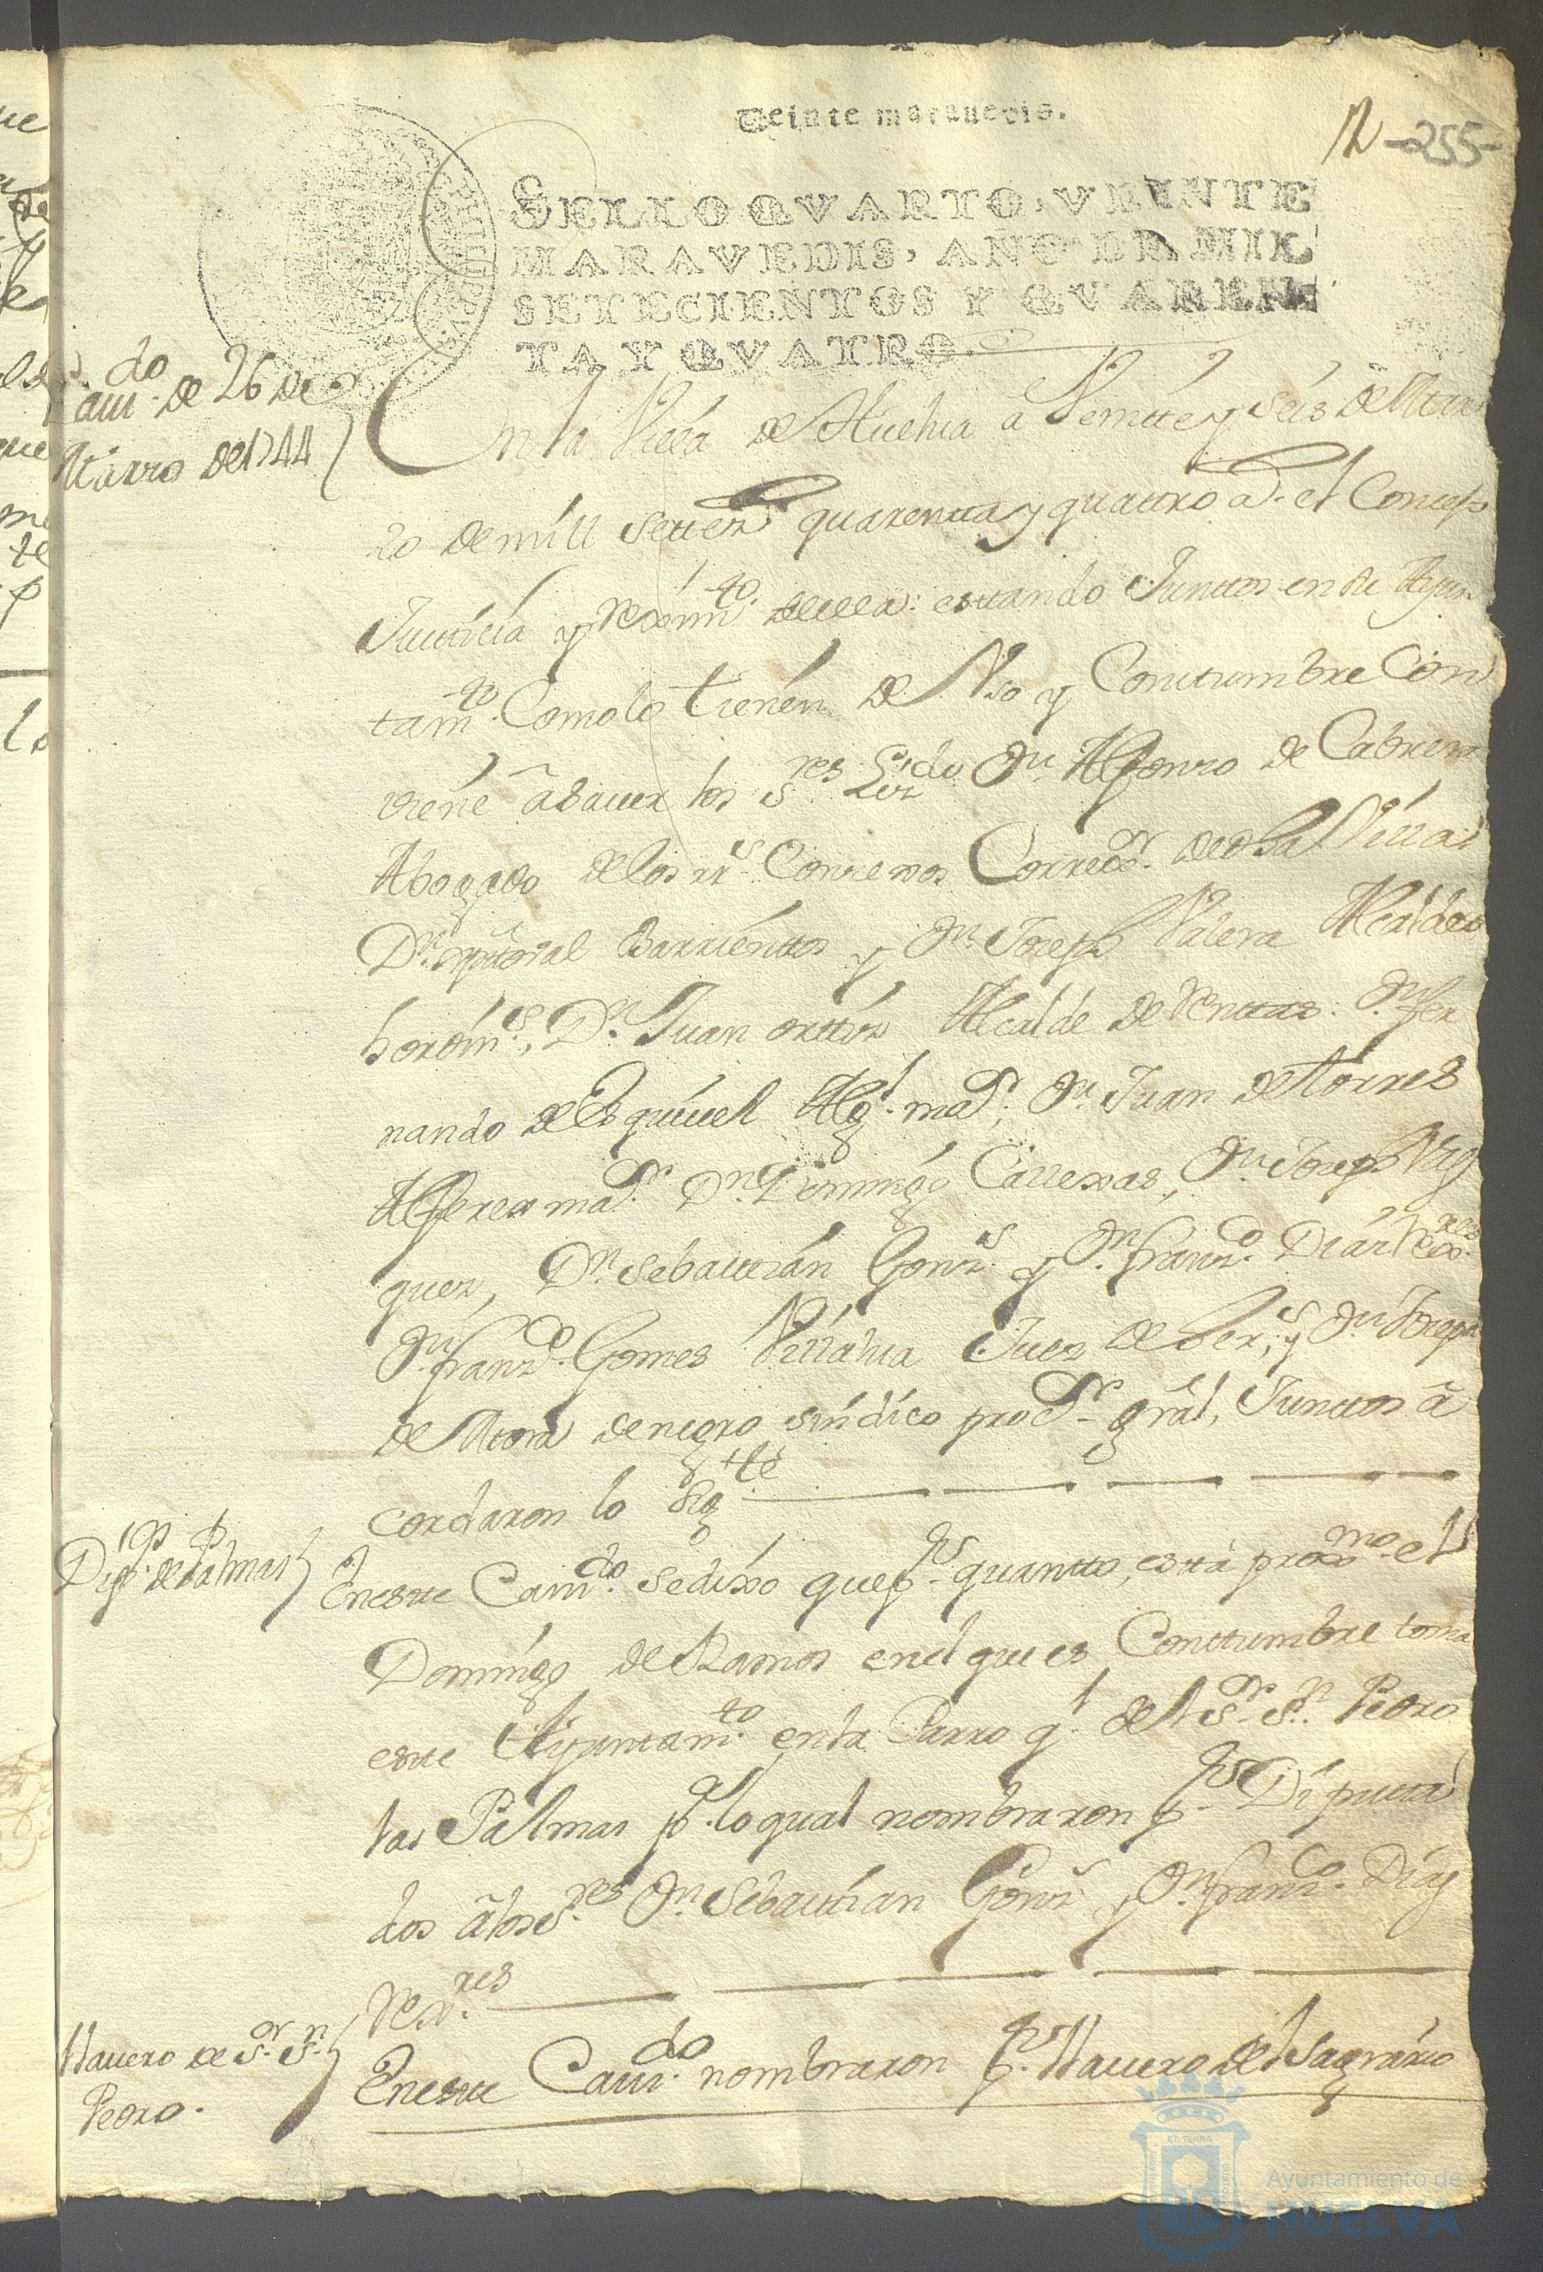 Veinte maravedis.
12 -255-
SELLO QVARTO, VEINTE
MARAVEDIS, AÑO DE MIL
SETECIENTOS Y QVAREN-
TA Y QVATRO.
Caudo. de 26 de
Marzo de 1744
En la Villa de Huelua â Veintte y seis de Mar
zo de mill settezs. quarentta y quattro as. el Concejo
Justicia y Reximto. de ella: estando Junttos en su Ayun
tamto. Como lo tienen de Vso y Consttumbre Con
viene â sauer los Sres. Lizdo. Dn. Alfonso de Cabrera
Abogado de los Rs. Consexos Correxor. de dha Villa
Dn. Xptoval Barrienttos y Dn. Joseph Valera Alcaldes
hordins., Dn. Juan orttiz Alcalde de Renttas: Dn. fer
nando de Esquiuel Algl. mayr., Dn. Juan de Torres
Alferez mayr. Dn. Domingo Callexas, Dn. Joseph Viz
quez, Dn. Sebasttian Gonzs. y Dn. Franzco. Diaz Rexres.
Dn. Franzco. Gomes Villalua Juez de Ters., y Dn. Joseph
de Mora de negro sindico procr. gral, Junttos â
cordaron lo sigtte.
Dipp. de palmas
En estte Caudo. se dixo que pr. quantto, estâ proxmo. el
Domingo de Ramos en el que es Consttumbre toma
estte Ayuntamto. en la Parroql. del Sor. Sn. Pedro
las Palmas pa. lo qual nombraron pr. Diputta
dos â los Sres. Dn. Sebasttian Gonz. y Dn. franco. Diaz
Rexres.
Llauero de Sor. Sn.
Pedro.
En estte Caudo. nombraron pr. llauero del Sagrario
ET TERRA
Ayuntamiento de
HUELVA